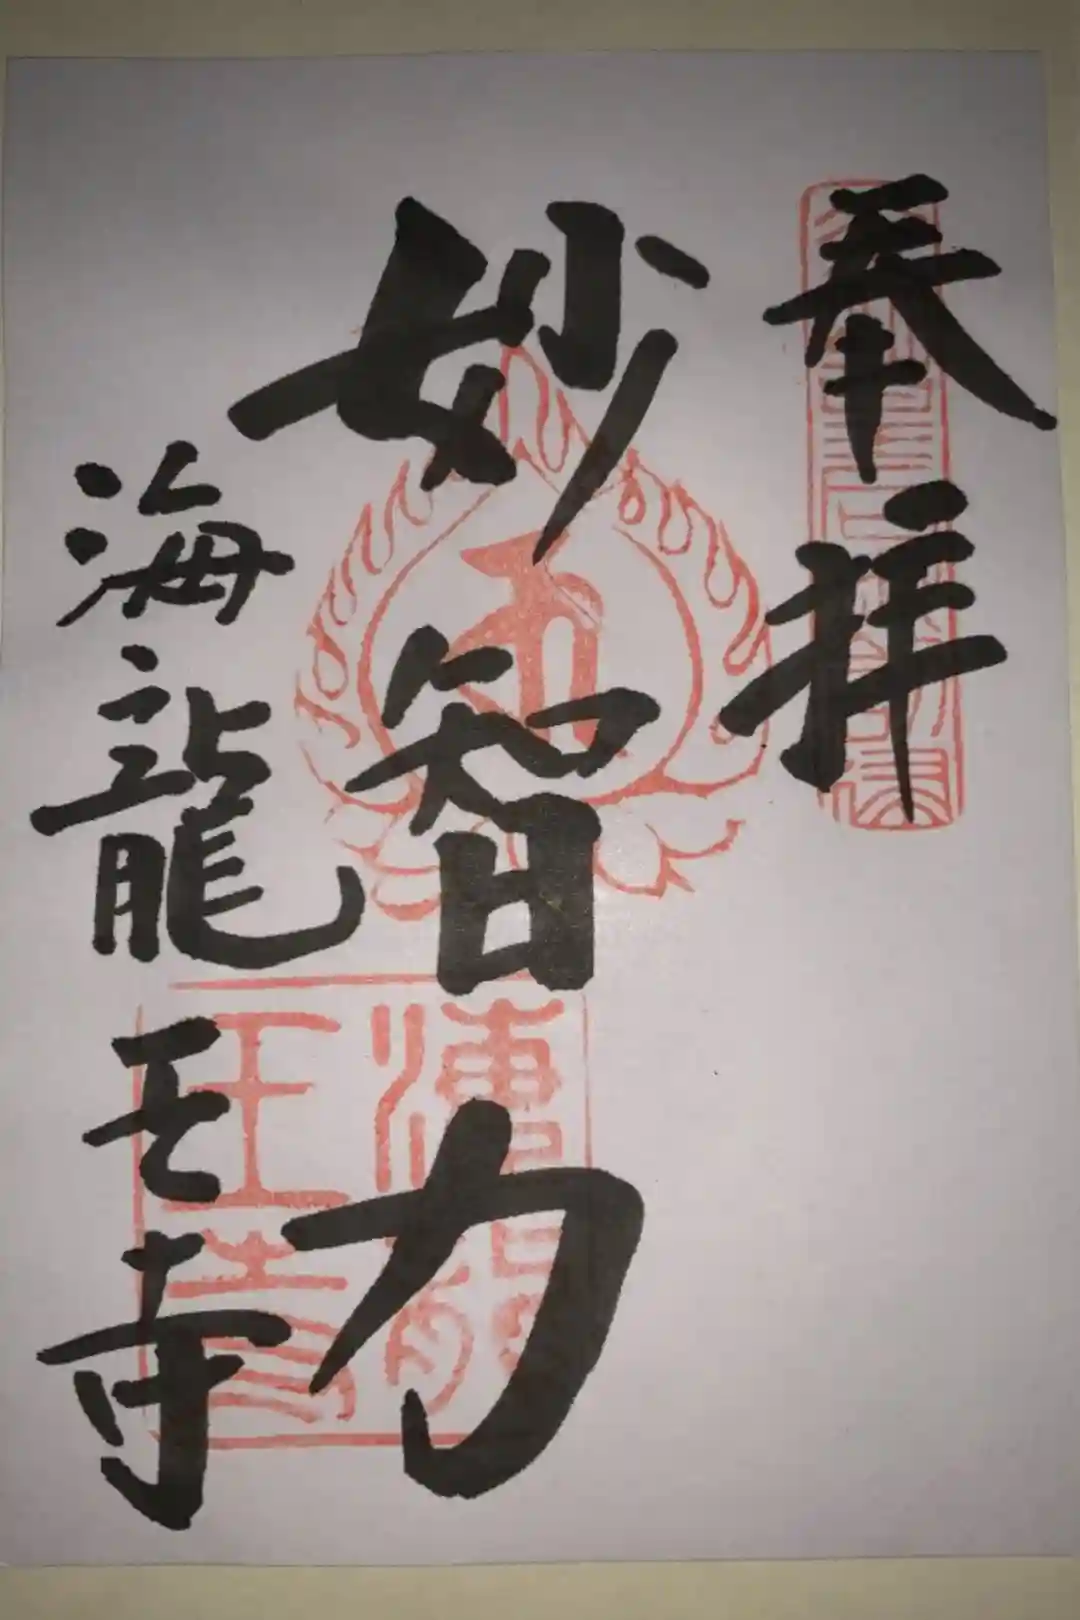 奉拝
妙智力
海龍王寺